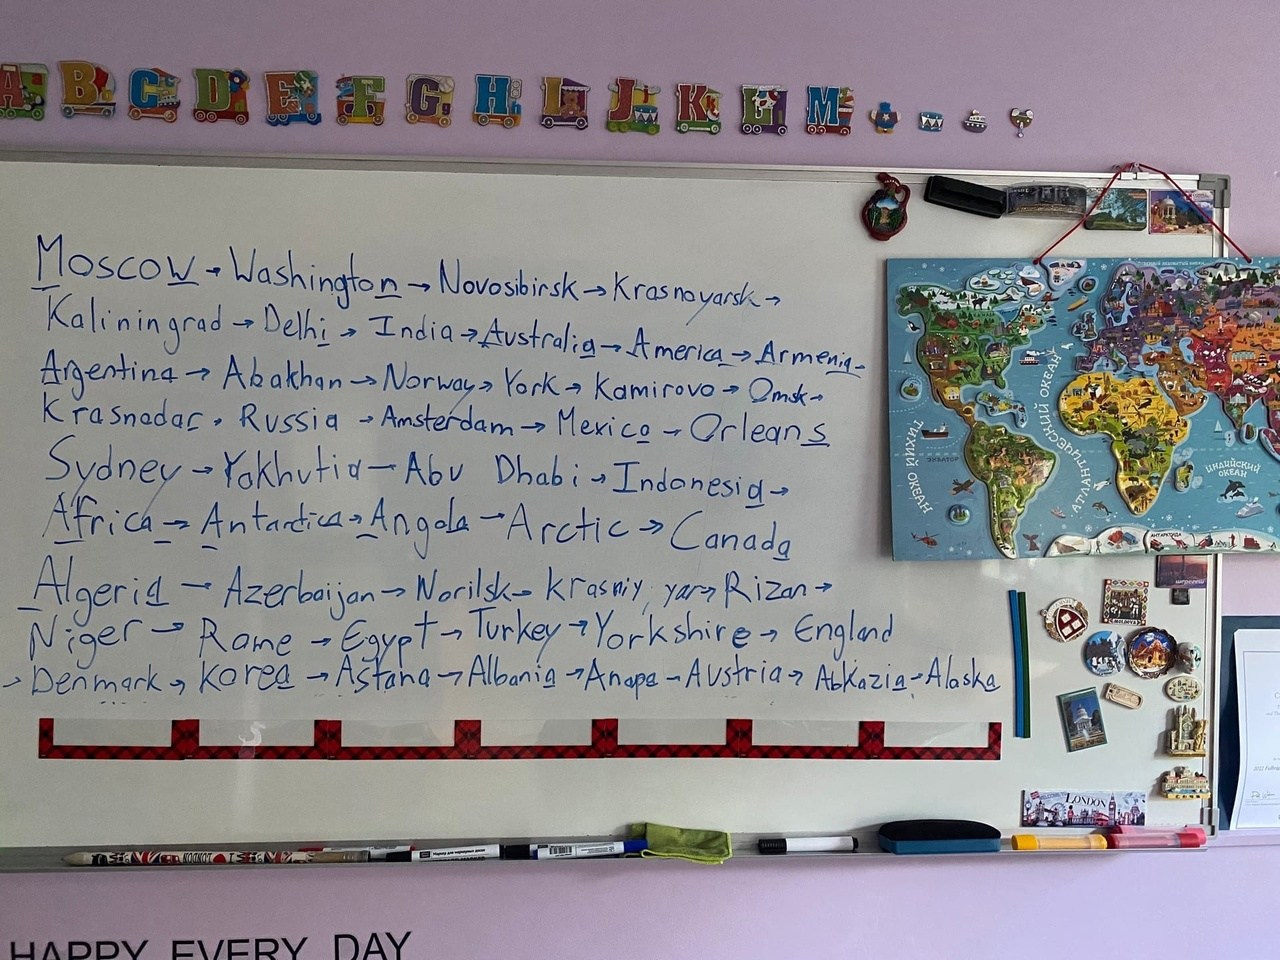 A B C D E F G H I J K L M
Moscow → Washington → Novosibirsk → Krasnoyarsk →
Kaliningrad → Delhi → India → Australia → America → Armenia →
Argentina → Abakhan → Norway → York → Kamirovo → Omsk →
Krasnadar → Russia → Amsterdam → Mexico → Orleans
Sydney → Yakhutia → Abu Dhabi → Indonesia →
Africa → Antarctica → Angola → Arctic → Canada
Algeria → Azerbaijan → Norilsk → Krasniy yar → Rizan →
Niger → Rome → Egypt → Turkey → Yorkshire → England
→ Denmark → Korea → Astana → Albania → Anapa → Austria → Abkazia → Alaska
ТИХИЙ ОКЕАН
АТЛАНТИЧЕСКИЙ ОКЕАН
ИНДИЙСКИЙ ОКЕАН
ЭКВАТОР
АНТАРКТИДА
MOLDOVA
LONDON
LONDON
HAPPY EVERY DAY